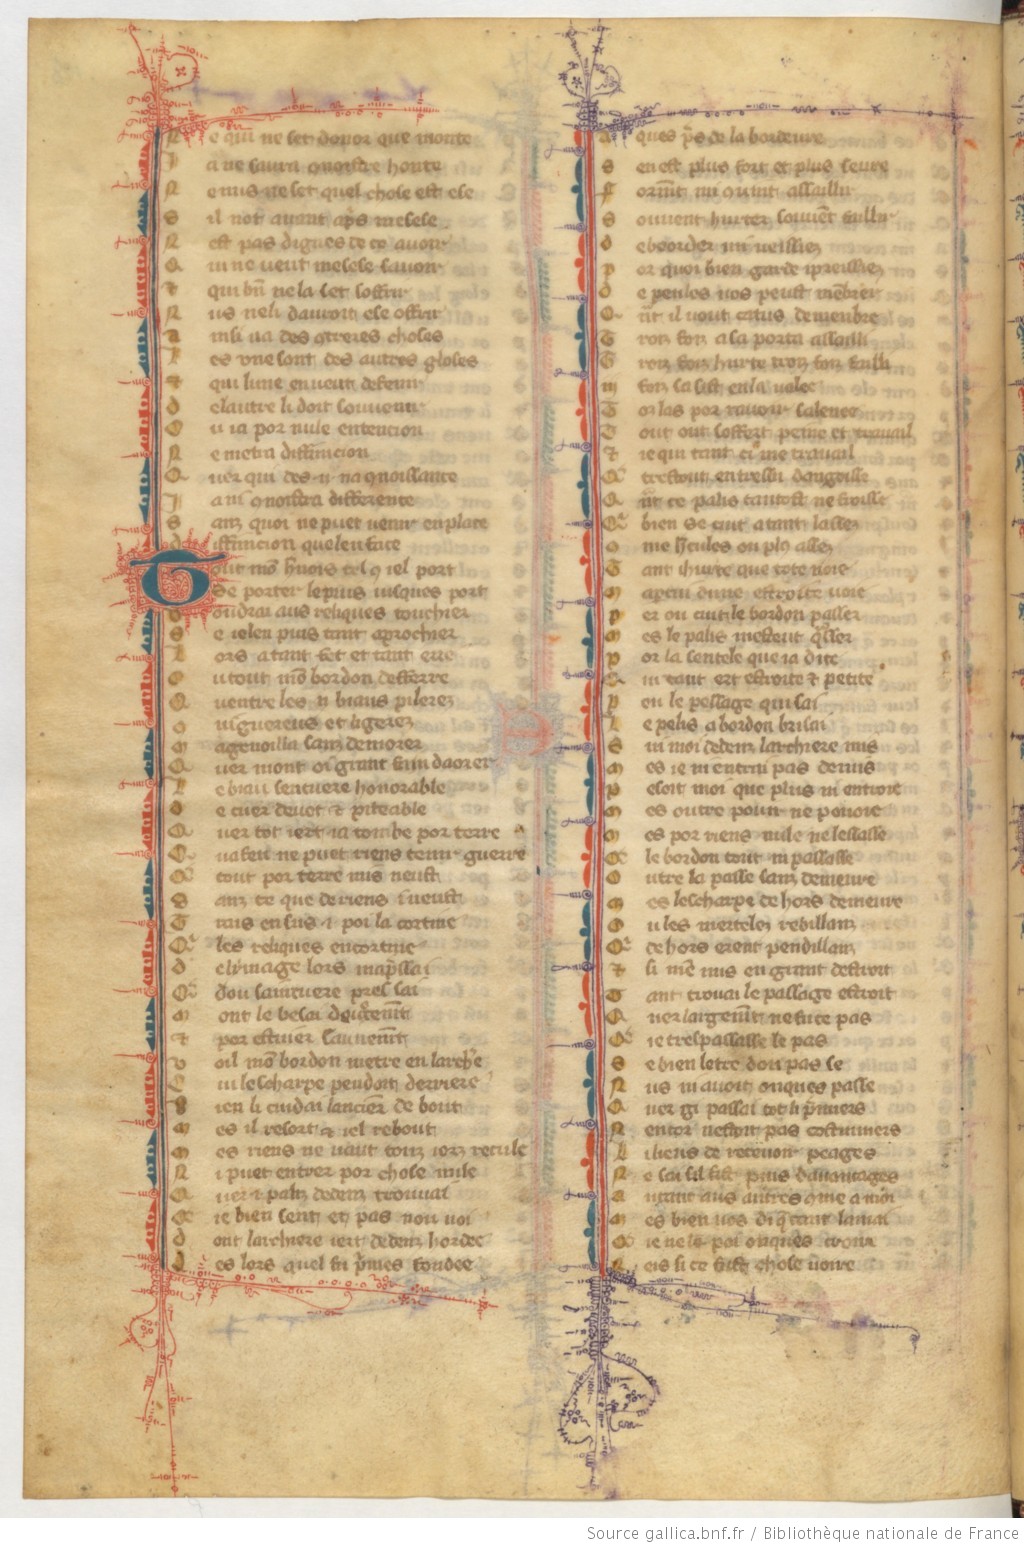 N e qui ne set donor que monte
J a ne saura gnoistre honte
N e nus ne set quel chose est ese
S il not auant apris mesese
N est pas dignes de co auoir
Q ui ne veut mesese sauoir
& qui bn̄ ne la set soffrir
N us ne li dauroit ese offrir
A insi ua des gtreres choses
L es vne sont des autres gloses
& qui lune en veut defenir
D e lautre li doit souuenir
O u ia por nule entencion
N e metra diffinicion
Q uer qui des .ii. na gnoissance
J a ni gnoistra differente
S anz quoi ne puet venir en place
D iffinicion quelen face
T out mō hnois tel g iel port
S e porter le puis iusques port
V oudrai aus reliques touchier
S e ielen puis tant aprochier
L ors a tant fet et tant erre
O u tout mō bordon desferre
Q uentre les .ii. biaus pilerez
O uiguereus et ligerez
M agenoillai sanz demorer
Q uer mout oi grant fain daorer
L e biau sentuere honorable
D e cuer deuot & piteable
Q uer tot iert ia tombe por terre
Q ua feu ne puet riens tenir guerre
Q̄ tout por terre mis neust
S anz ce que de riens i neust
T rais en sus .i. poi la cortine
Q̄ les reliques encortine
D e lymage lors mapssai
Q̄ dou saintuere pres sai
M ont le besai deuotemt̄
& por estuier sauuemt̄
V oil mō bordon metre en larchiere
O u lescharpe pendoit derriere
B ien li cuidai lancier de bout
M es il resort & iel rebout
M es riens ne vaut touz iorz recule
N i puet entrer por chose nule
Q uer .i. palis dedenz trouuai
Q̄ ie bien sent et pas nou uoi
D ont larchiere iert dedenz hordee
D es lors quel fu prmes fondee
A uques ps de la bordeure
S en est plus fort et plus seure
F ormt̄ mi quint assaillir
S ouuent hurter souuēt faillir
D e boorder mi veissiez
P or quoi bien garde i preissiez
D e peules uos peust mēbrer
Q nt il vout catus demenbre
T roiz foiz a sa porta assailli
T roiz foiz hurte troiz foiz failli
III foiz sassist en la valee
T oz las por rauoir salenee
T out out soffert peine et trauail
& ie qui tant ci me trauail
Q̄ trestout en tressui dangoisse
Q nt ce palis tantost ne froisse
Q̄ bien se cuit atant lassez
C ome hcules ou plg assez
T ant ihurte que tote uoie
M apcui dune estroite uoie
P er ou cuit le bordon passer
M es le palis mestent qsser
P or la sentele que ia dite
Q ui tant ert estroite & petite
P en le pessage qui sai
L e palis a bordon brisai
S ui moi dedenz larchiere mis
M es ie ni entrai pas demis
P esoit moi que plus ni entroie
M es outre poair ne pouoie
M es por riens nule ne lessasse
Q̄ le bordon tout ni passasse
O utre la passe sanz demeure
M es lescharpe de hors demeure
O u les marteles rebillanz
Q̄ de hors erent pendillanz
& si mē mis en grant destroit
T ant trouai le passage estroit
Q uer largemt̄ ne fu ce pas
Q̄ ie trespassasse le pas
S e bien lestre dou pas se
N us ni auoit onques passe
Q uer gi passai tot li prmiers
N encor nestoit pas costumiers
L i liens de receuoir peages
N e sai sil fist puis dauantages
A utant aus autres gme a moi
M es bien uos di q̄ tant lamai
Q̄ ie ne le poi onques croire
N eis si ce fust chose uoire
Source gallica.bnf.fr / Bibliothèque nationale de France